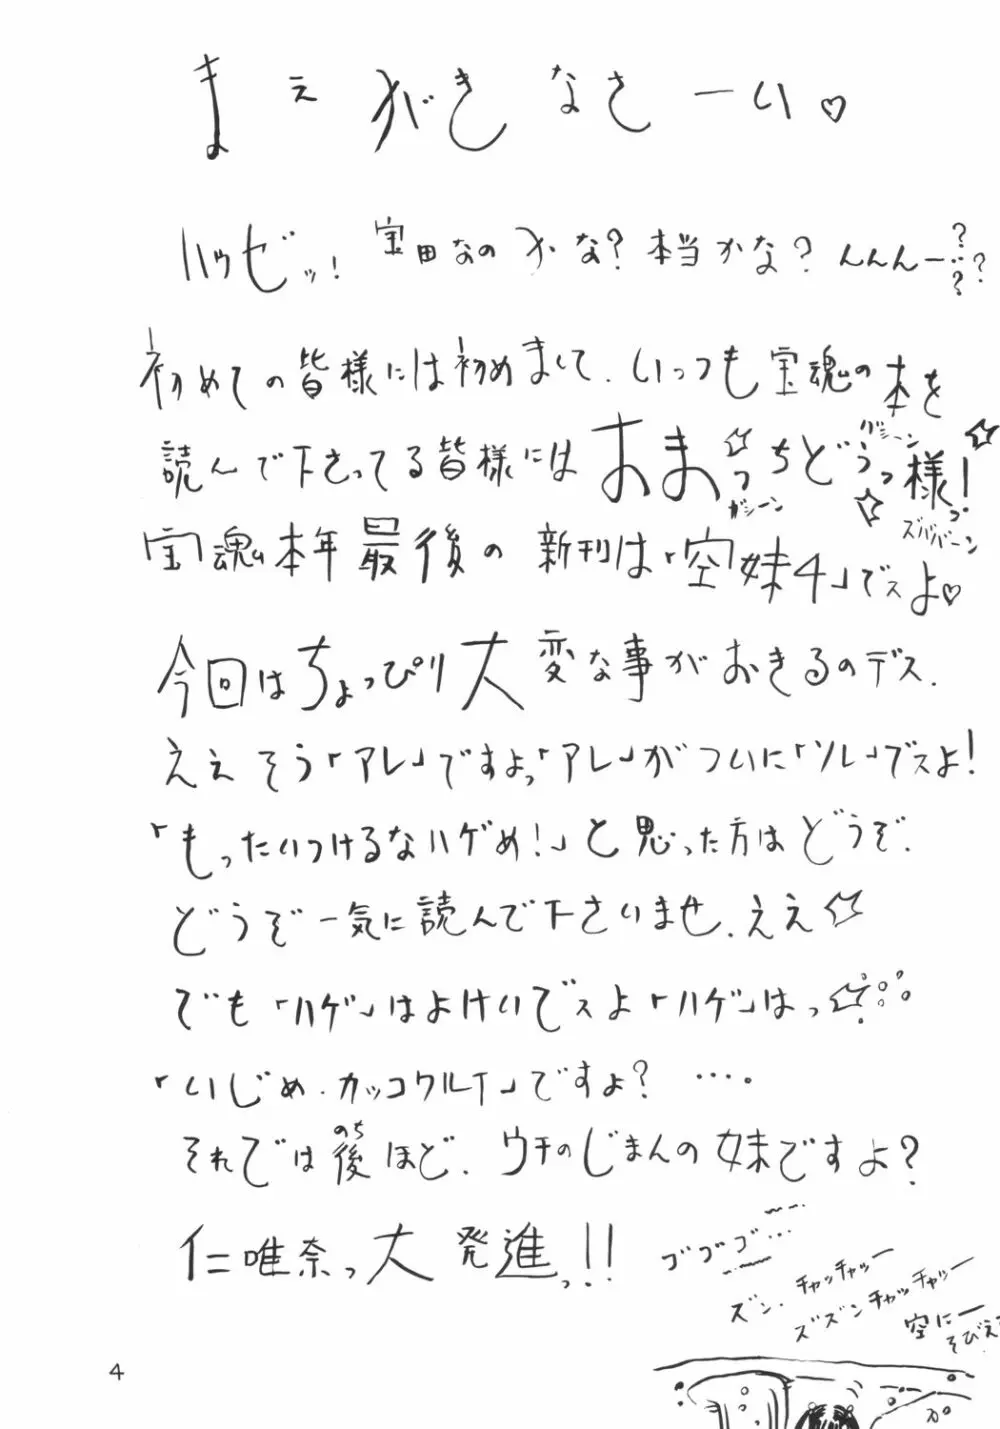 まえがきなさーい♡
ハゥゼッ! 宝田なのかな?本当かな?んんんー…???
初めての皆様には初めまして.いっつも宝魂の本を
読んで下さってる皆様にはおまっちどうっ様っ!
ガシーン
ガシーン
ズババーン
宝魂本年最後の新刊は「空妹4」でスよ♡
今回はちょっぴり大変な事がおきるのデス.
ええそう「アレ」ですよっ「アレ」がついに「ソレ」でスよ!
「もったいつけるなハゲめ!」と思った方はどうぞ.
どうぞ一気に読んで下さいませ.ええ☆
でも「ハゲ」はよけいでスよ「ハゲ」はっ☆
「いじめ.カッコワルイ」ですよ? ….
それでは後ほど.ウチのじまんの妹ですよ?
のち
仁唯奈っ大発進っ!!
ゴゴゴゴ…
ズン.チャッチャー
ズズンチャッチャッー
空にー
そびえ
4